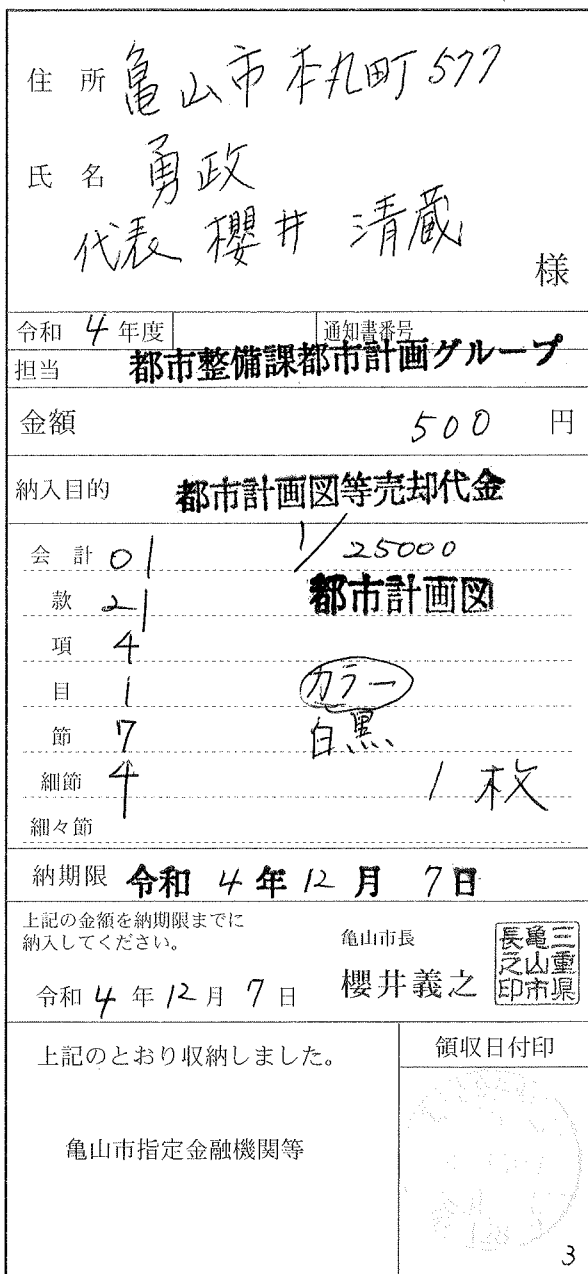 住所 亀山市本丸町577
氏名 勇政
代表 櫻井 清蔵
様
令和 4 年度 通知書番号
担当 都市整備課都市計画グループ
金額 500 円
納入目的 都市計画図等売却代金
会計 01 1/25000
款 21 都市計画図
項 4
目 1 カラー
節 7 白黒
細節 4 1枚
細々節
納期限 令和 4年 12月 7日
上記の金額を納期限までに
納入してください。
亀山市長
令和 4 年 12 月 7 日 櫻井義之
三重県
亀山市
長之印
上記のとおり収納しました。
領収日付印
亀山市指定金融機関等
3